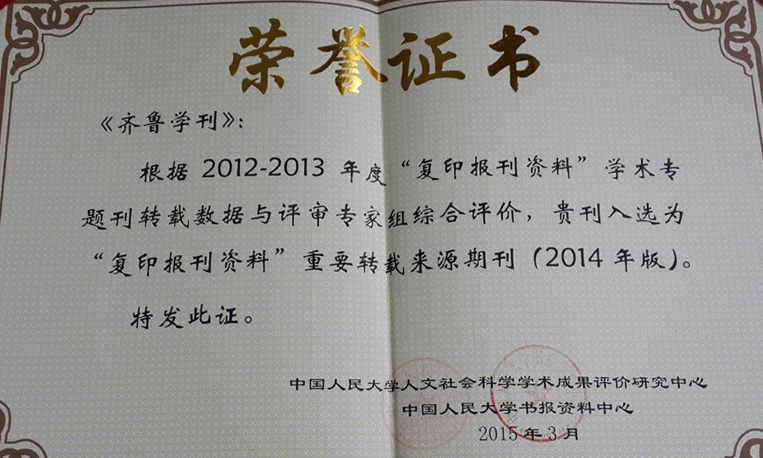 荣誉证书
《齐鲁学刊》：
根据 2012-2013 年度“复印报刊资料”学术专
题刊转载数据与评审专家组综合评价，贵刊入选为
“复印报刊资料”重要转载来源期刊（2014 年版）。
特发此证。
中国人民大学人文社会科学学术成果评价研究中心
中国人民大学书报资料中心
2015年3月